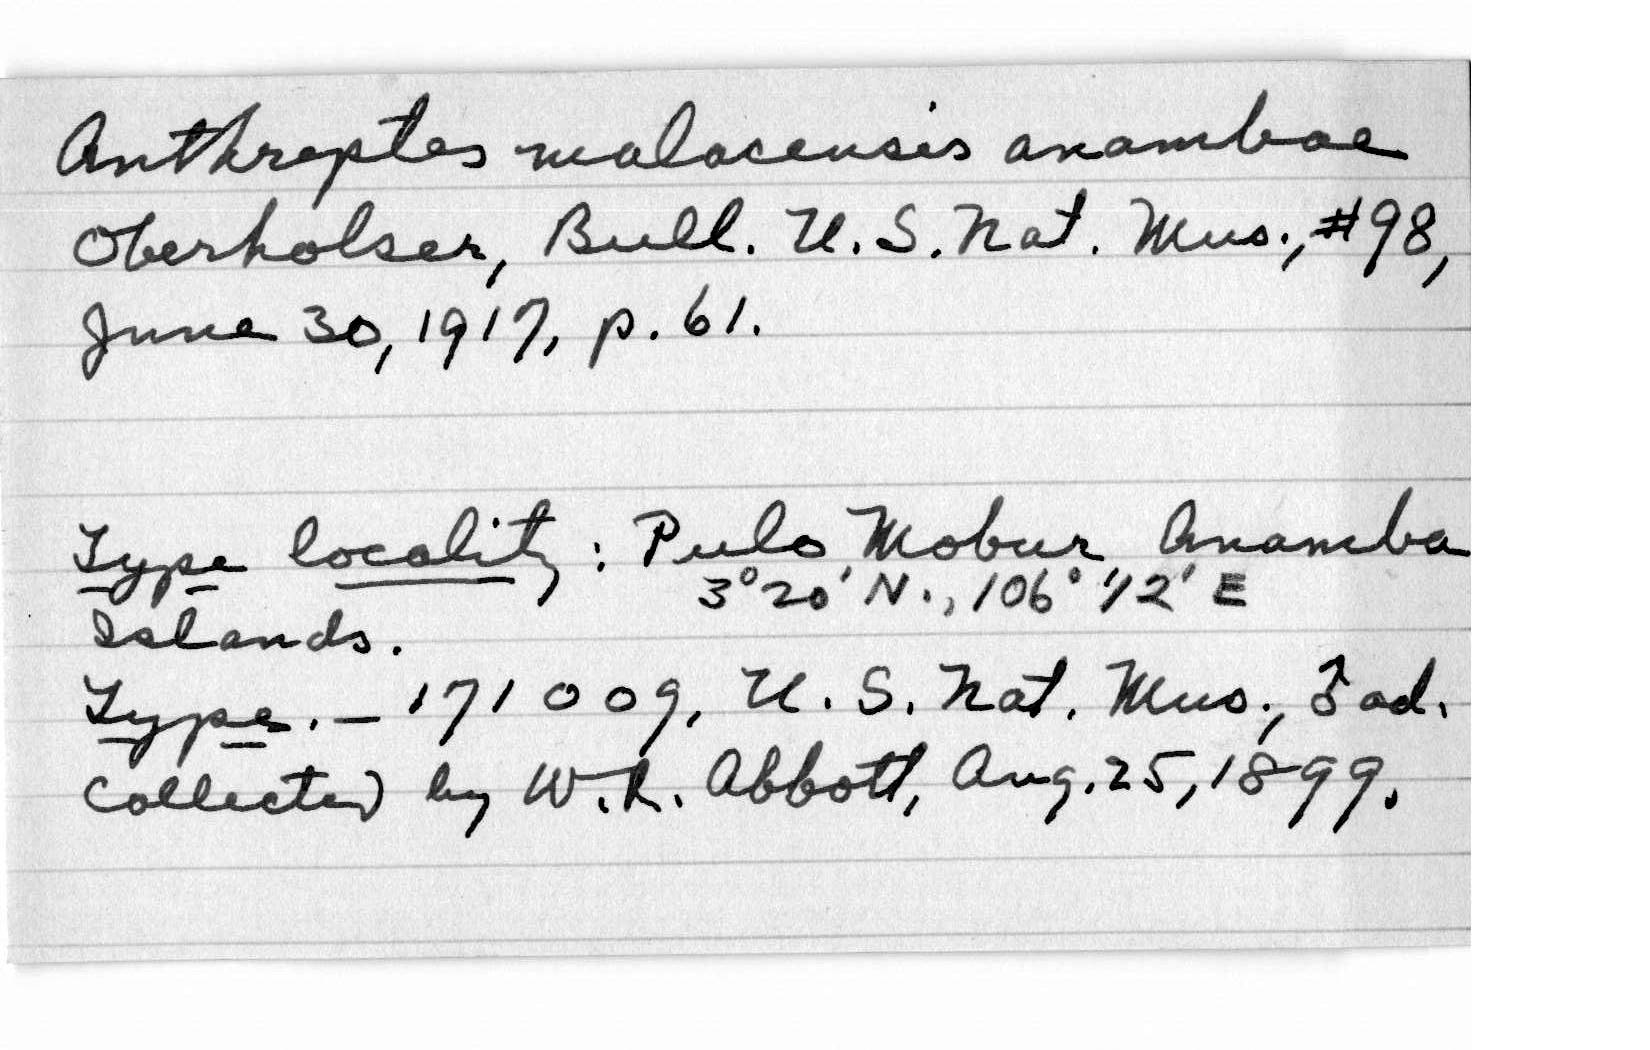 Anthreptes malacensis anambae
Oberholser, Bull. U.S. Nat. Mus., #98,
June 30, 1917, p. 61.
Type locality: Pulo Mobur Anamba
3°20' N., 106° 12' E
Islands.
Type. — 171009, U.S. Nat. Mus., ♂ ad.
Collected by W.L. Abbott, Aug. 25, 1899.